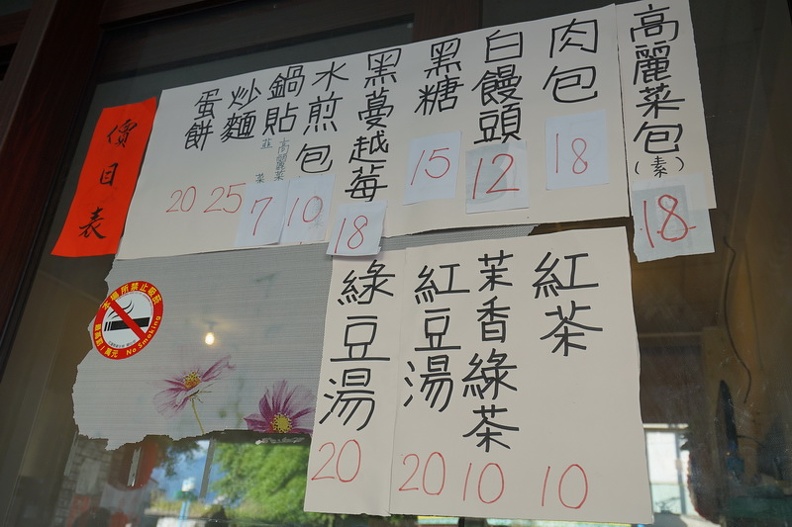 高麗菜包(素) 18
肉包 18
白饅頭 12
黑糖 15
黑蔓越莓 18
水煎包 10
鍋貼 高麗菜 韮菜 7
炒麵 25
蛋餅 20
價目表
紅茶 10
茉香綠茶 10
紅豆湯 20
綠豆湯 20
本場所禁止吸菸
No Smoking